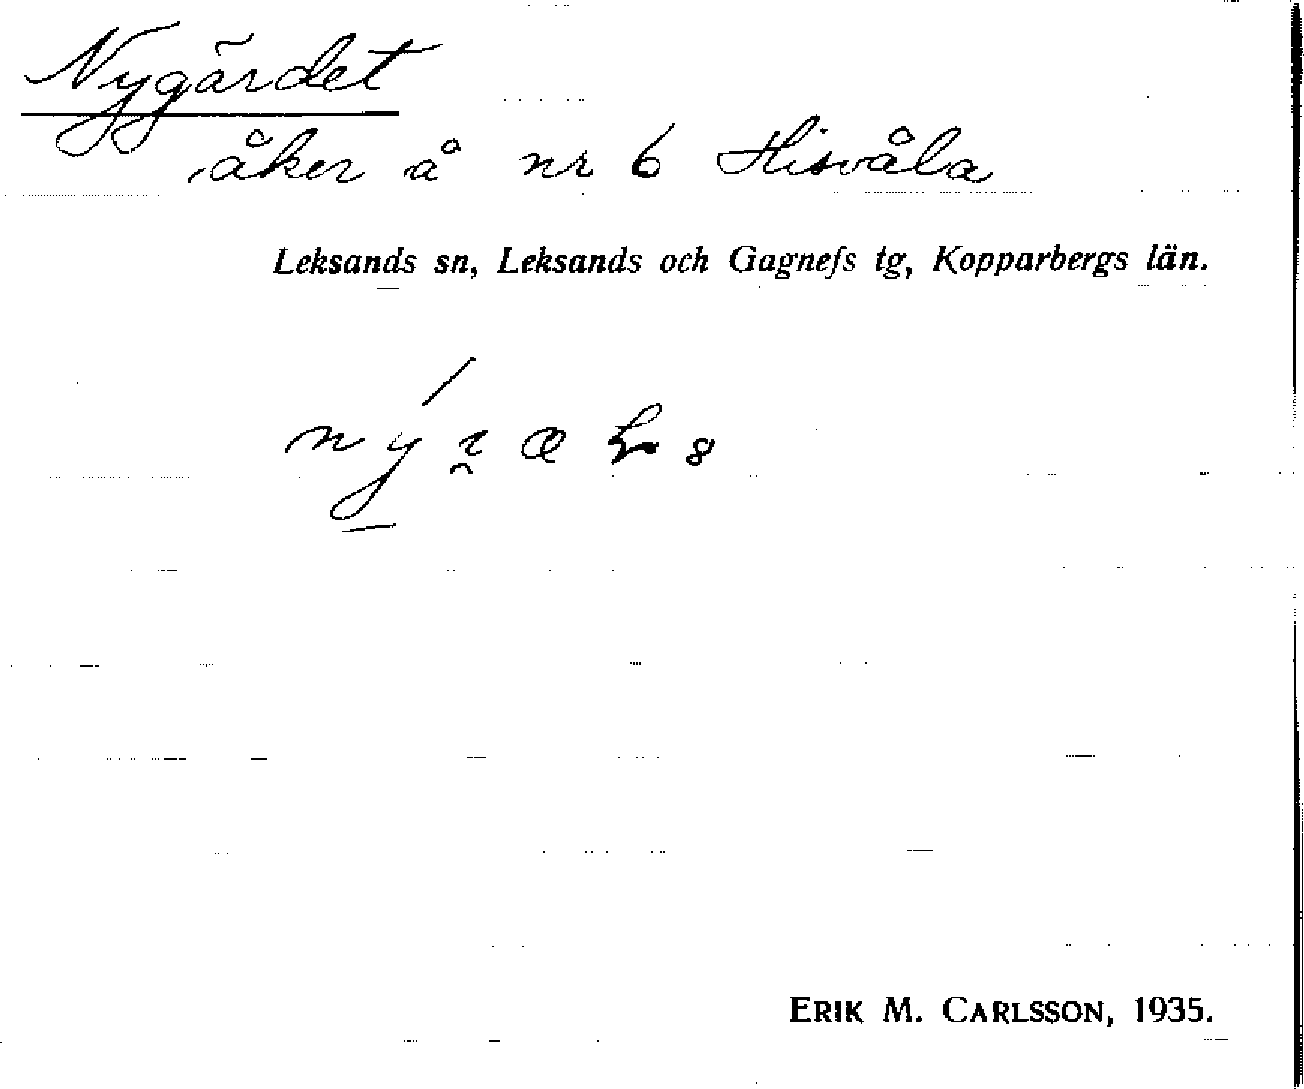 Nygärdet
åker å nr 6 Hisvåla
Leksands sn, Leksands och Gagnefs tg, Kopparbergs län.
ERIK M. CARLSSON, 1935.